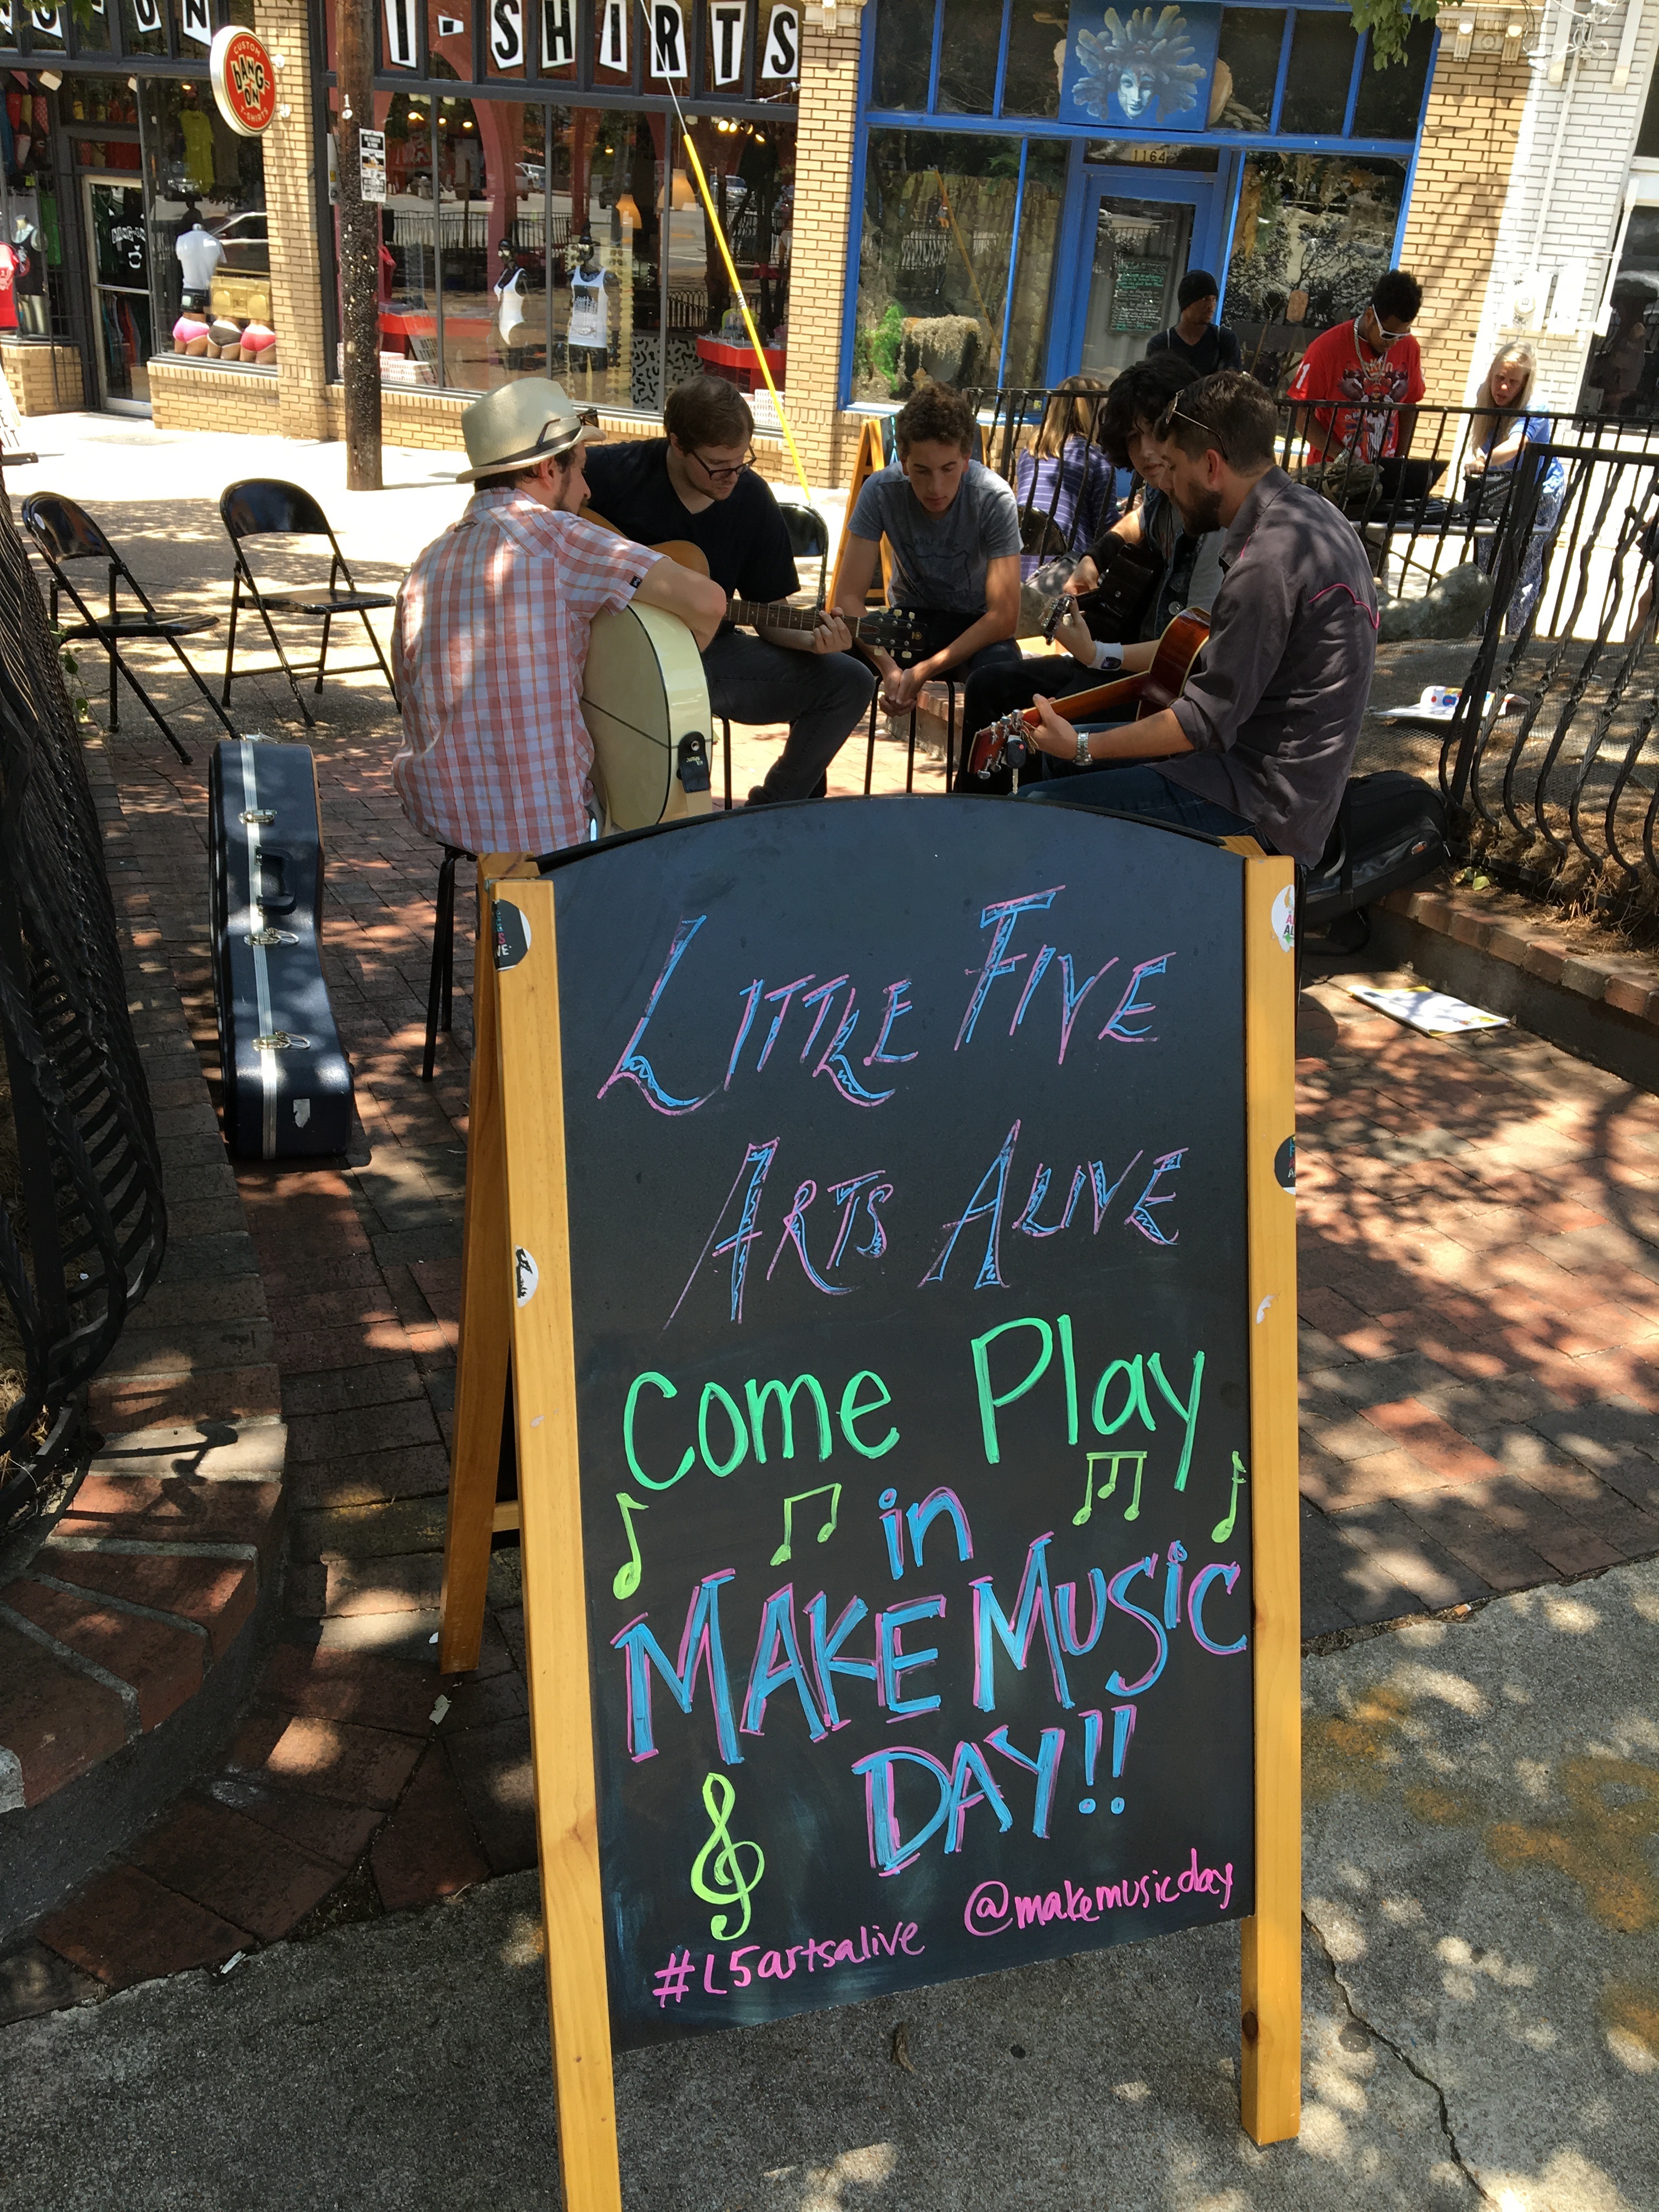 ON
T-SHIRTS
CUSTOM
BANG-
ON
T-SHIRTS
1164
LITTLE FIVE
ARTS ALIVE
Come Play
in
MAKE MUSiC
DAY!!
#L5artsalive @makemusicday